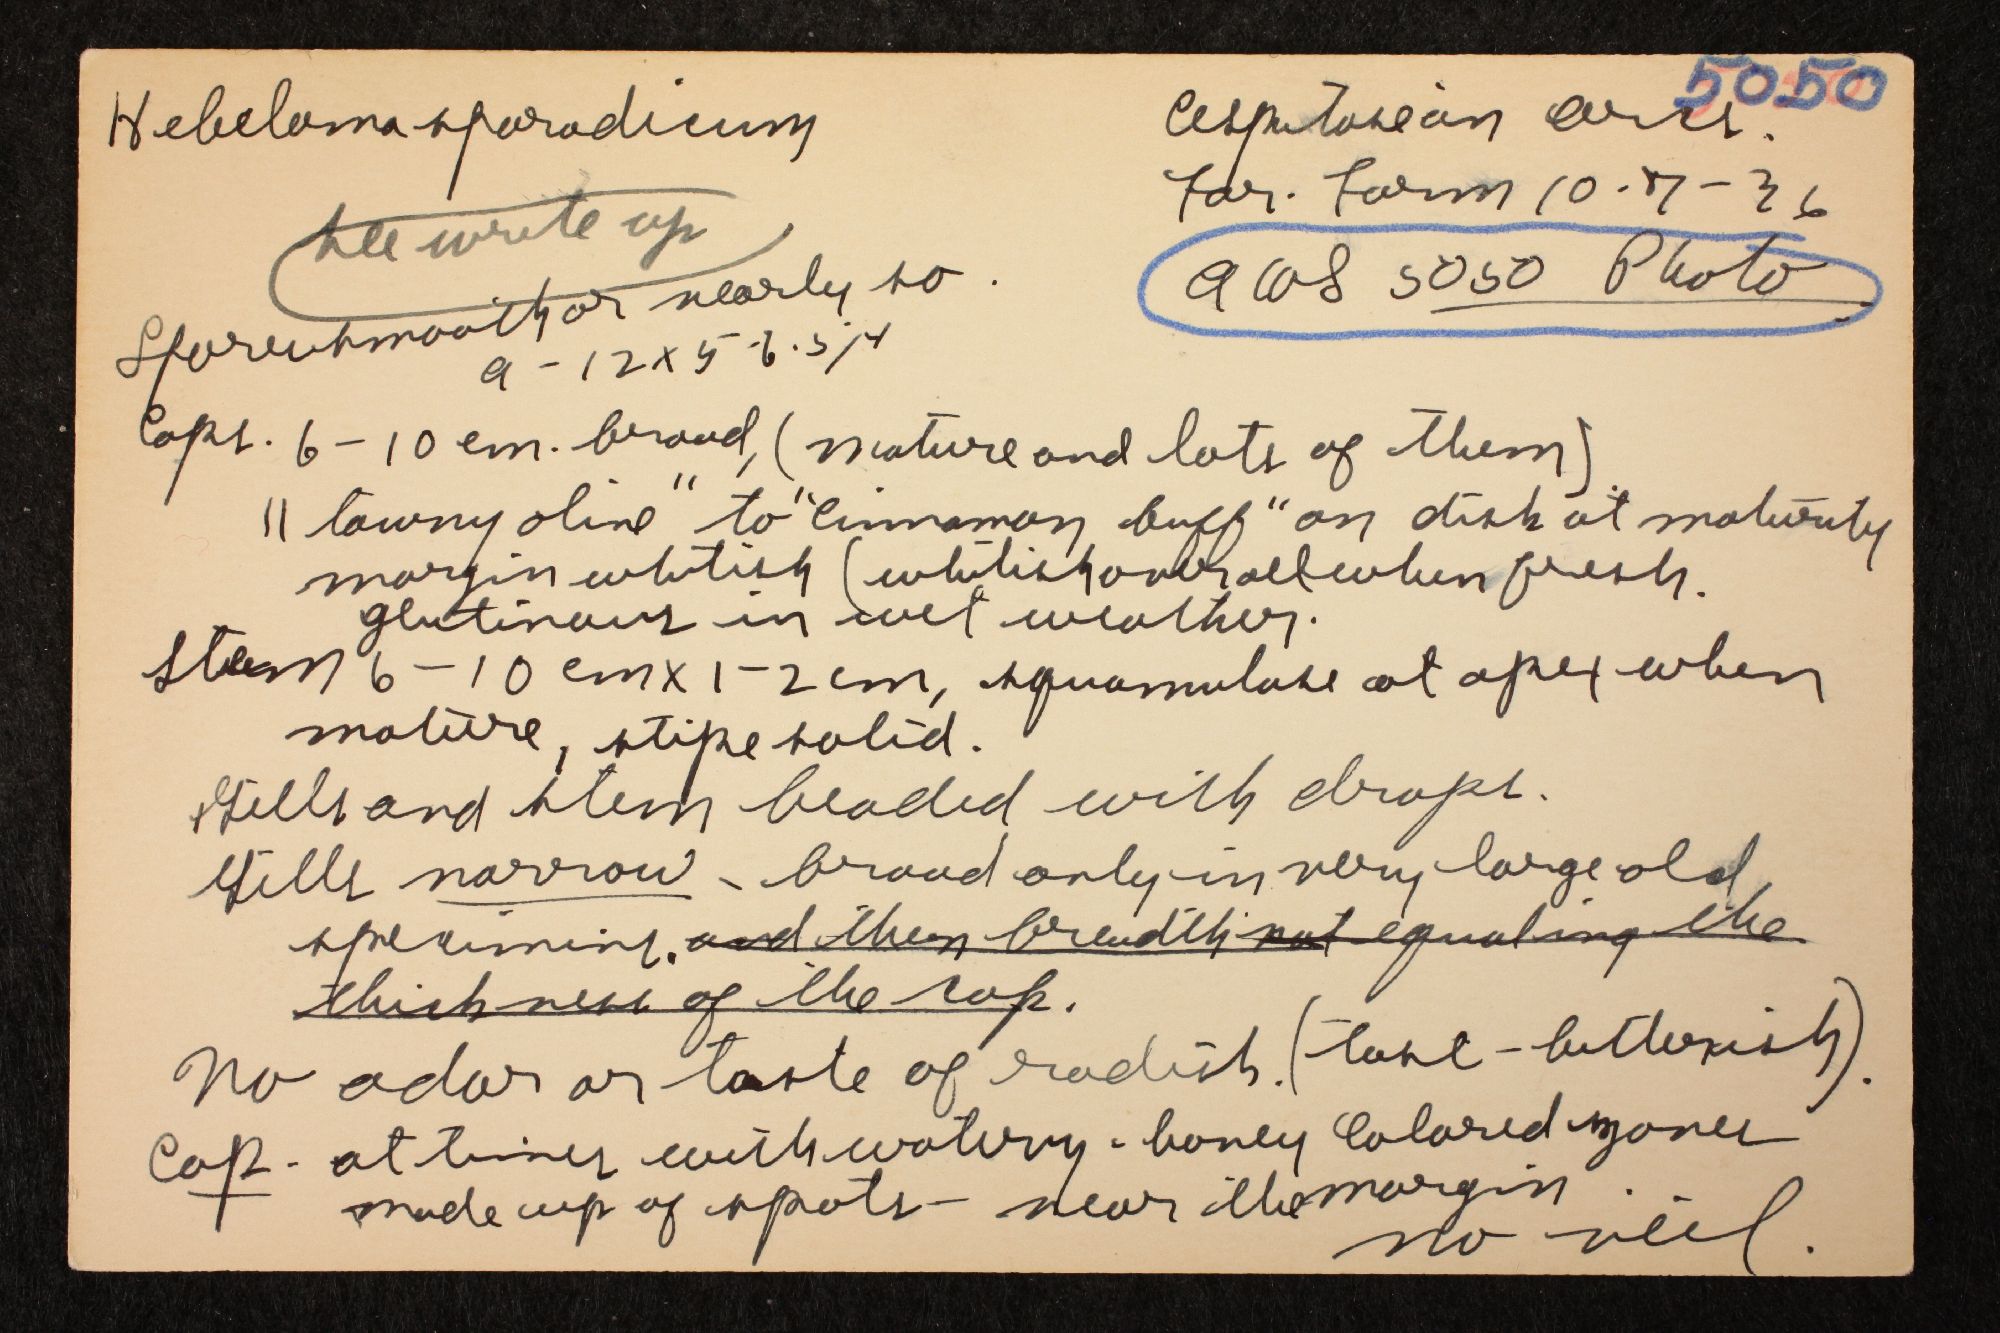 5050
Hebeloma sporadicum
Cespitose in arcs.
For. Farm 10-7-36
see write up
AWS 5050 Photo
Spores smooth or nearly so.
9-12 x 5-6.5 µ
Caps. 6-10 cm. broad, (mature and lots of them)
"tawny olive" to "cinnamon buff" on disk at maturity
margin whitish (whitish over all when fresh.
glutinous in wet weather.
Stem 6-10 cm x 1-2 cm, squamulose at apex when
mature, stipe solid.
Gills and stem beaded with drops.
Gills narrow - broad only in very large old
specimins. and then breadth not equaling the
thickness of the cap.
No odor or taste of radish. (taste - bitterish).
Cap - at times with watery-honey colored zones
made up of spots - near the margin.
no veil.